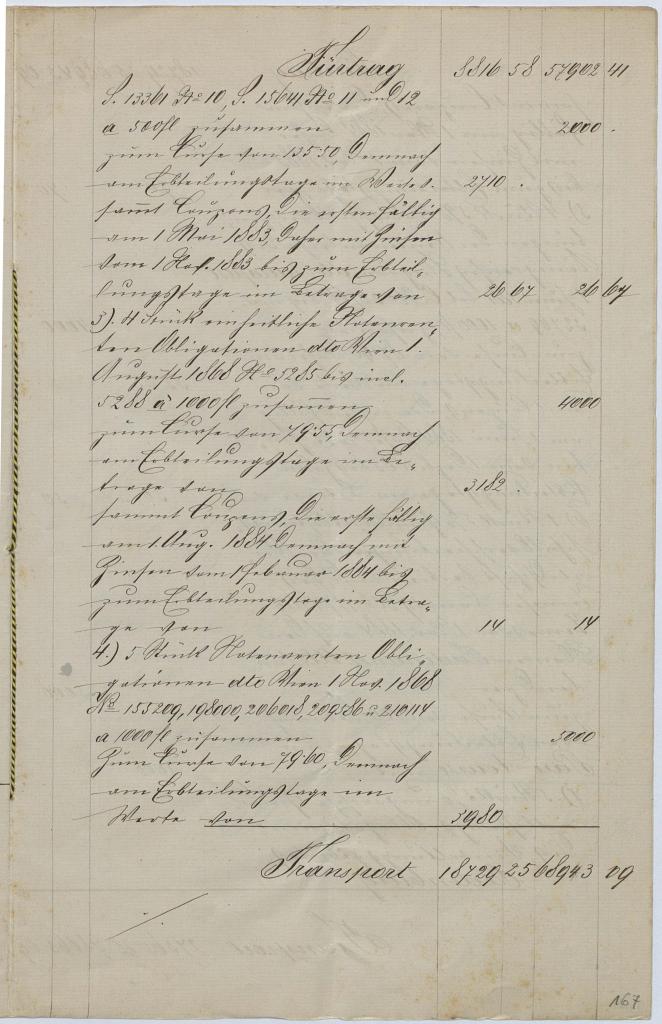 Fürtrag 8816 58 57902 41
S. 13361 No 10, S. 15641 No 11 und 12
a 500 fl zusammen 2000 .
zum Curse von 135·50, demnach
am Erbteilungstage im Werte v. 2710 .
sammt Coupons, die ersten fällig
am 1 Mai 1883, daher mit Zinsen
vom 1 Nov. 1883 bis zum Erbtei-
lungstage im Betrage von 26 67 26 67
3). 4 Stück einheitliche Notenren-
ten Obligationen dto Wien 1.
August 1868 No 5285 bis incl.
5288 à 1000 fl zusammen 4000
zum Curse von 79·55, demnach
am Erbteilungstage im Be-
trage von 3182 .
sammt Coupons, die erste fällig
am 1. Aug. 1884 demnach mit
Zinsen vom 1 Februar 1884 bis
zum Erbteilungstage im Betra-
ge von 14 14
4.) 5 Stück Notenrenten Obli-
gationen dto Wien 1 Nov. 1868
No 155209, 198000, 206018, 209586 u 210114
a 1000 fl zusammen 5000
zum Curse von 79·60, demnach
am Erbteilungstage im
Werte von 3980
Transport 18729 25 68943 09
167